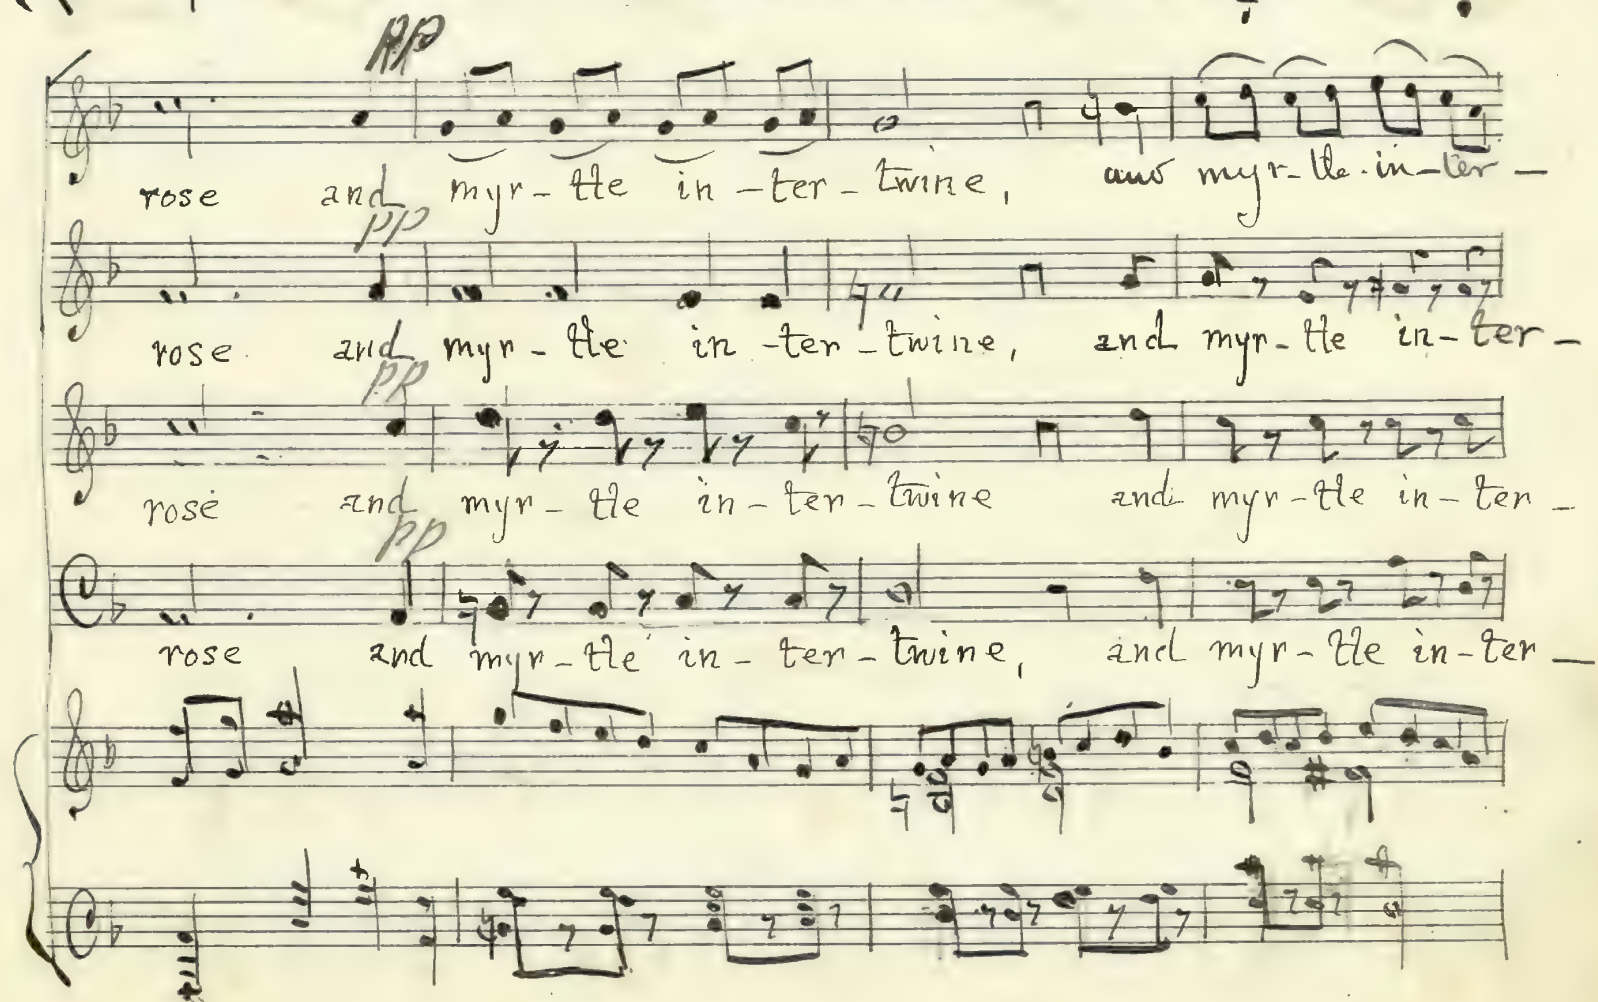 pp
rose and myr-tle in-ter-twine, and myr-tle-in-ter-
pp
rose and myr-tle in-ter-twine, and myr-tle in-ter-
pp
rose and myr-tle in-ter-twine and myr-tle in-ter-
pp
rose and myr-tle in-ter-twine, and myr-tle in-ter-